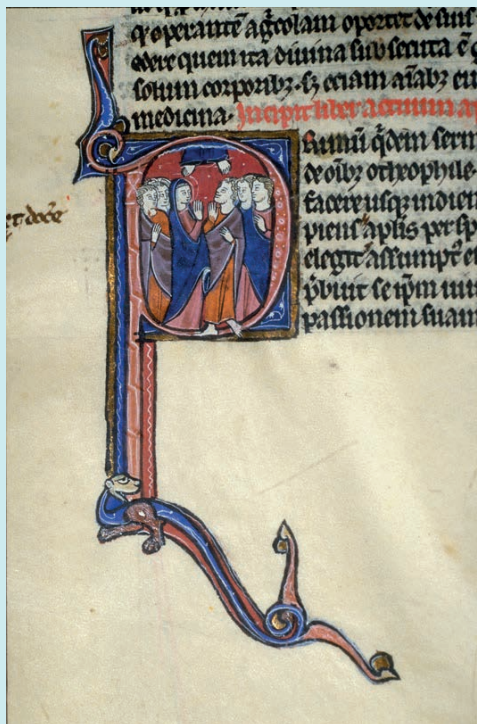 operantē ag̃colam oportet de suis
edere quem ita divina subsecuta ē g
solum corporibꝫ. sꝫ eciam aīabꝫ eiu
medicina. Incipit liber actuum ap
Primū q̄dem serm
de oībꝫ o theophile.
et docē
facere usqꝫ in diem
piens ap̄lis per sp
elegit assumptꝰ e
p̄buit se ip̄m uiu
passionem suam